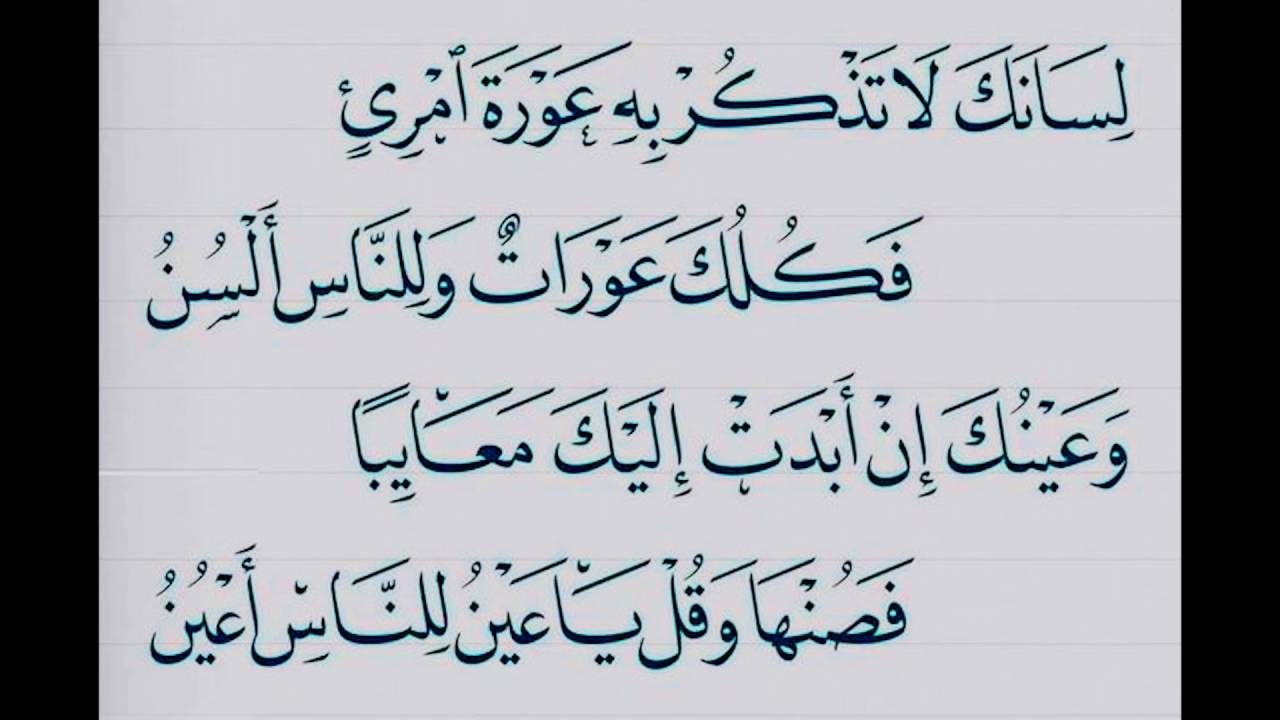 لِسَانَكَ لَا تَذْكُرْ بِهِ عَوْرَةَ ٱمْرِئٍ
فَكُلُّكَ عَوْرَاتٌ وَلِلنَّاسِ أَلْسُنُ
وَعَيْنُكَ إِنْ أَبْدَتْ إِلَيْكَ مَعَايِبًا
فَصُنْهَا وَقُلْ يَا عَيْنُ لِلنَّاسِ أَعْيُنُ